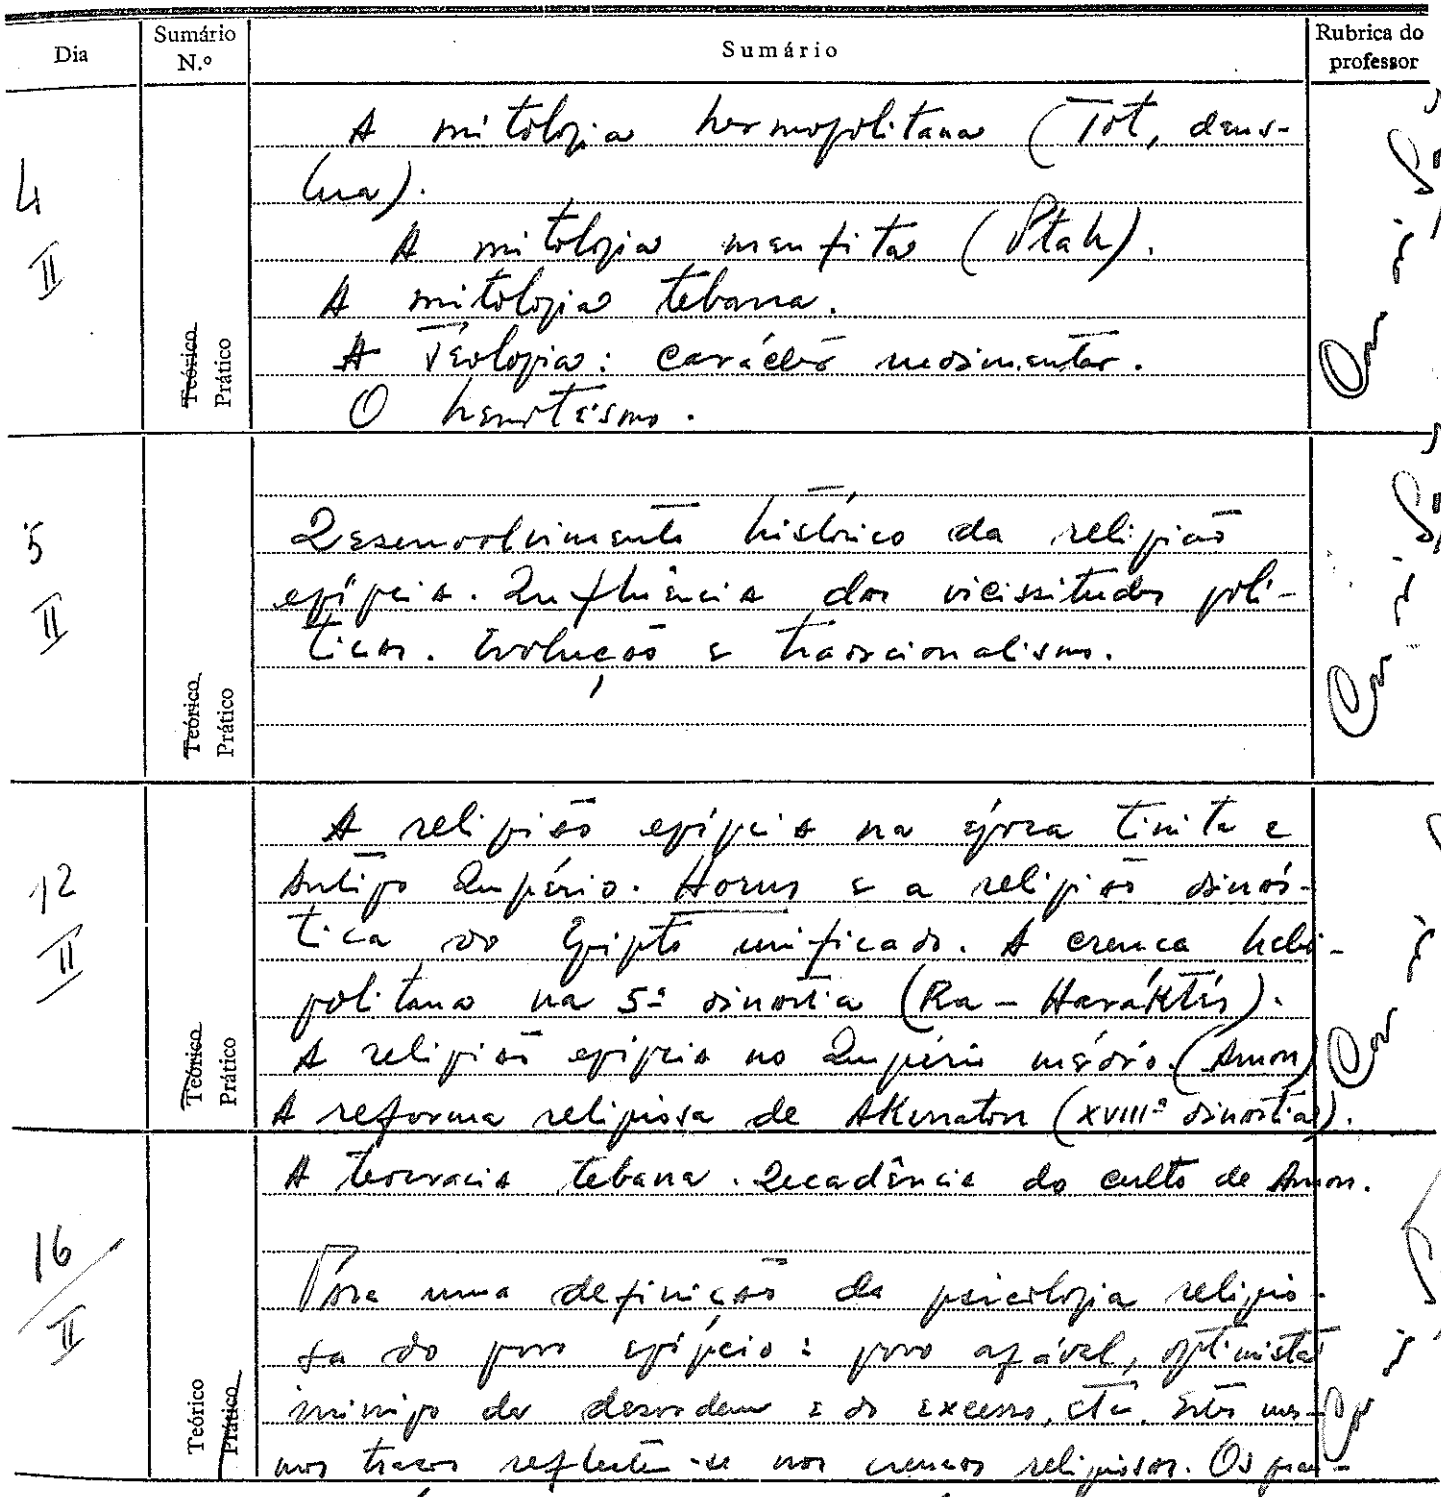 Dia
Sumário
N.º
Sumário
Rubrica do
professor
4
II
Teórico
Prático
A mitologia hermopolitana (Tot, deus-
lua).
A mitologia menfita (Ptah).
A mitologia tebana.
A Teologia: carácter rudimentar.
O henoteísmo.
5
II
Teórico
Prático
Desenvolvimento histórico da religião
egípcia. Influência das vicissitudes polí-
ticas. Evolução e tradicionalismo.
12
II
Teórico
Prático
A religião egípcia na época tinita e
Antigo Império. Horus e a religião dinás-
tica do Egipto unificado. A crença helio-
politana na 5ª dinastia (Ra - Haráktés).
A religião egípcia no Império médio. (Amon)
A reforma religiosa de Akenaton (XVIIIª dinastia).
16
II
Teórico
Prático
A teocracia tebana. Decadência do culto de Amon.
Para uma definição da psicologia religio-
sa do povo egípcio: povo afável, optimista
inimigo da desordem e do excesso, etc. Estes mes-
mos traços reflectem-se nas crenças religiosas. Os